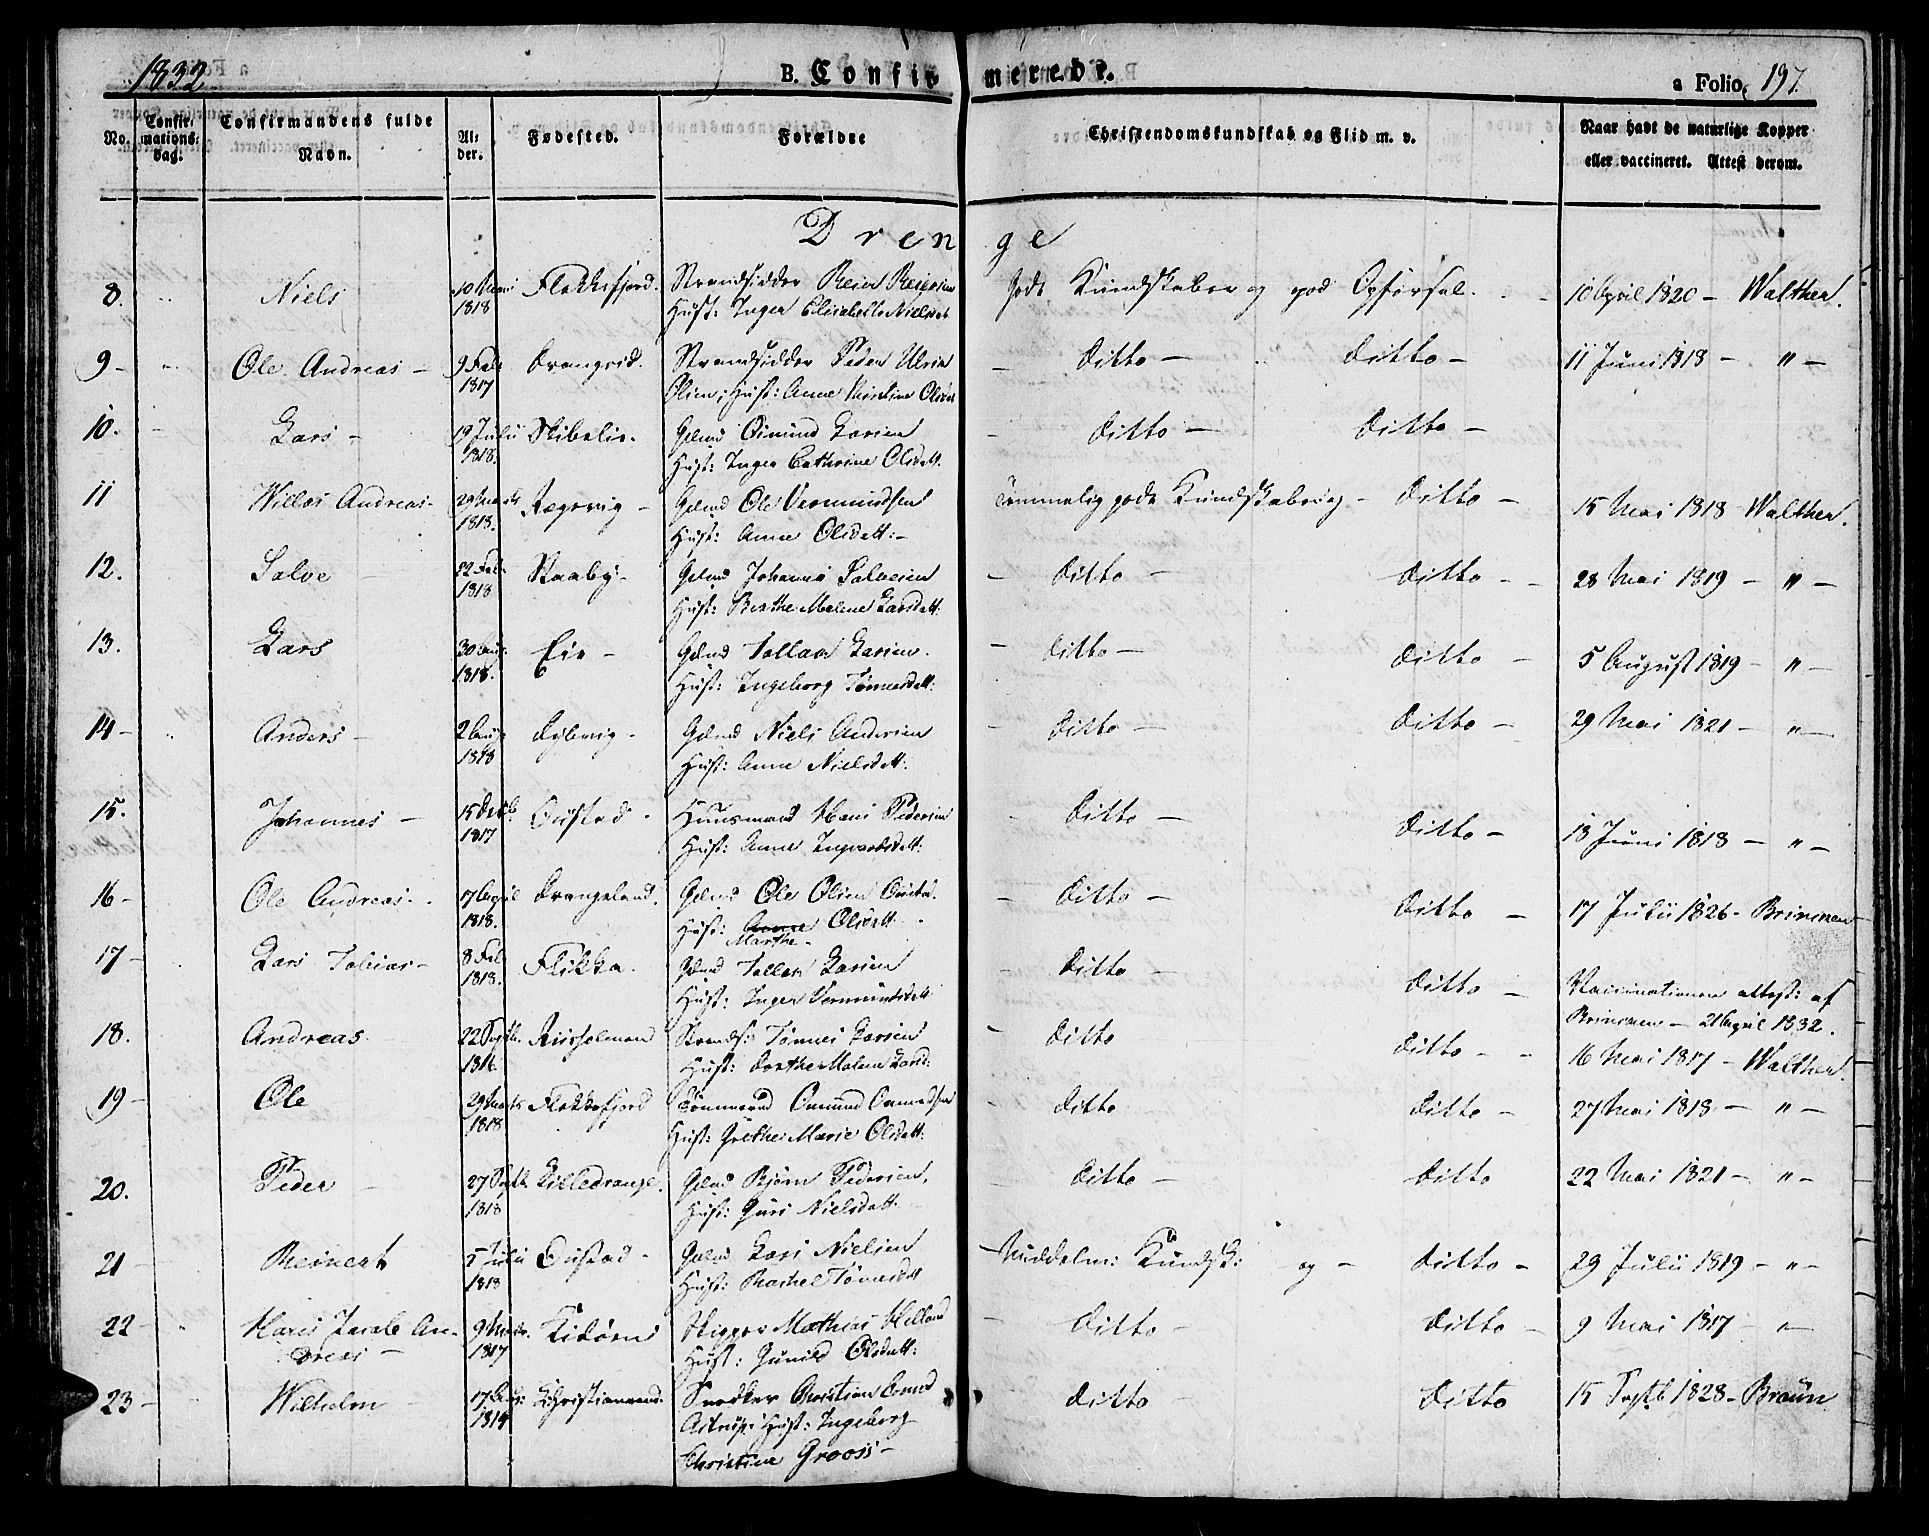 1832
B. Confirmerede.
a Folio 197.
No. Confirmations-Dag. Confirmandens fulde Navn. Alder. Fødested. Forældre Christendomskundskab og Flid m. v. Naar havt de naturlige Kopper eller vaccineret. Attest derom.
Drenge
8. Niels 1818 Flekkefjord. Strandsidder Reier Reiersen
Hust: Inger Elisabeth Nielsdat
Gode Kundskaber og god Opførsel. 10 April 1820 – Walther.
9 – Ole Andreas – 9 Feb 1817 Drangvik. Strandsidder Peder Ulrik
Olsen; Hust: Anne Kirstine Olsdat
– Ditto – Ditto – 11 Juni 1818 – " –
10. Lars – 19 Juli 1818. Skibelie. Gdmd Omund Larsen
Hust: Inger Cathrine Olsdatt.
– Ditto – Ditto –
11 Willas Andreas – 29 Marts 1818. Regevig – Gdmd Ole Vermundsen
Hust: Anne Olsdatt: –
Temmelig gode Kundskaber og – Ditto – 15 Mai 1818 Walther.
12. Salve – 22 Feb 1818 Staaby – Gdmd Johannes Salvesen
Hust: Berthe Malene Larsdatt:
– Ditto – Ditto – – 28 Mai 1819 – " –
13. Lars 30 Aug: 1818. Eie – Gdmd Tollak Larsen.
Hust: Ingeborg Tønnesdatt:
– Ditto – Ditto – 5 August 1819 – " –
14 – Anders – 2 Aug: 1818 Dybvig – Gdmd Niels Andersen
Hust: Anne Nielsdatt:
– Ditto – Ditto – 29 Mai 1821 – " –
15. Johannes – 15 Decb 1817 Oustad – Huusmand Hans Pedersen
Hust: Anne Ingvorsdatt:
– Ditto – Ditto – 13 Juni 1818 – " –
16 – Ole Andreas – 17 April 1818. Drangeland. Gdmd Ole Olsen
Hust: Anne Olsdatt –
Marthe –
– Ditto – Ditto – 17 Juli 1826 – Brinman
17 – Lars Tobias – 8 Feb 1818. Flikka. Gdmd Tollak Larsen
Hust: Inger Vermundsdatt
– Ditto – Ditto – Vaccinationen attest: af
Brinman – 21 April 1832.
18. Andreas. 22 Septb. 1816 Strands: Tønnes Larsen
Hust: Dorthe Malene Larsd:
– Ditto Ditto – – 16 Mai 1817 – Walther.
19 – Ole 29 Marts 1818 Flekkefjord Tømmermd Omund Omundsen
Hust: Grethe Marie Olsdatt:
– Ditto Ditto – 27 Mai 1818 – " –
20. Peder – 27 Septb. 1818 Lilledrange. Gdmd Bjørn Pedersen,
Hust: Guri Nielsdatt.
– Ditto – Ditto 22 Mai 1821 – " –
21 – Reinert 5 Juli 1818 Oustad – Gdmd Lars Nielsen
Hust: Rachel Tønnesdtt
– Middelm: Kundsk: og – Ditto – 29 Juli 1819 – " –
22 – Hans Jacob An-
dreas –
9 1817 Kidøen Skipper Mathias Helland
Hust: Gunild Olsdatt:
– Ditto – Ditto – 9 Mai 1817 – " –
23 – Wilhelm – 17 Aug: Christiansand. Snedker Christian
Astrup; Hust: Ingeborg
Christine Grooss –
Ditto Ditto 15 Septb 1828 – Braun